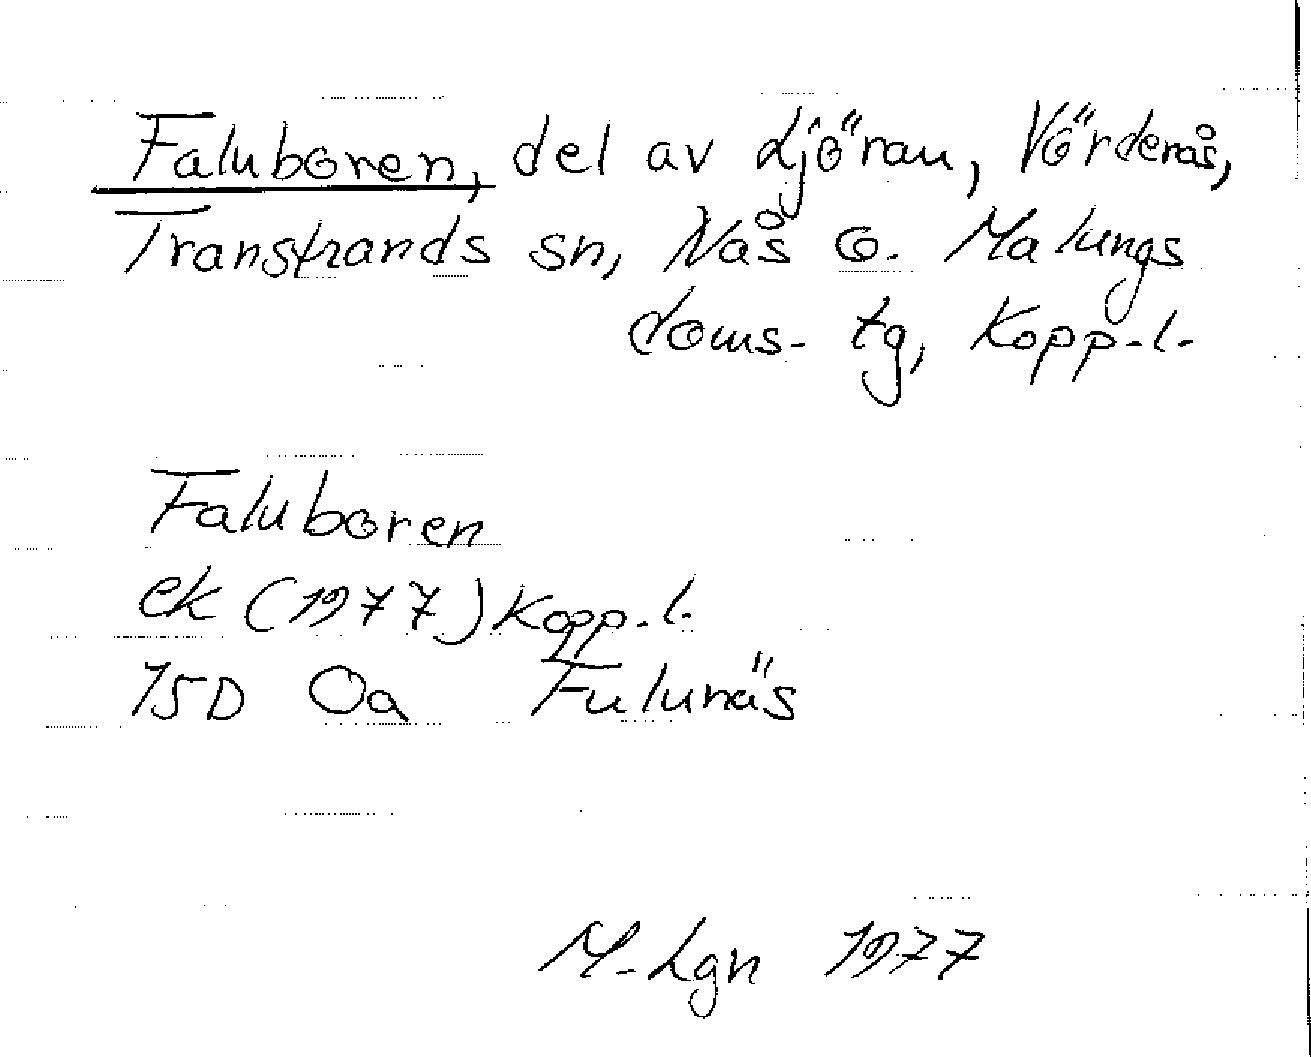 Faluboren, del av Ljöran, Vörderås,
Transtrands sn, Nås o. Malungs
doms- tg, Kopp.l.
Faluboren
ek (1977) Kopp.l.
15D 0a Fulunäs
M-Lgn 1977